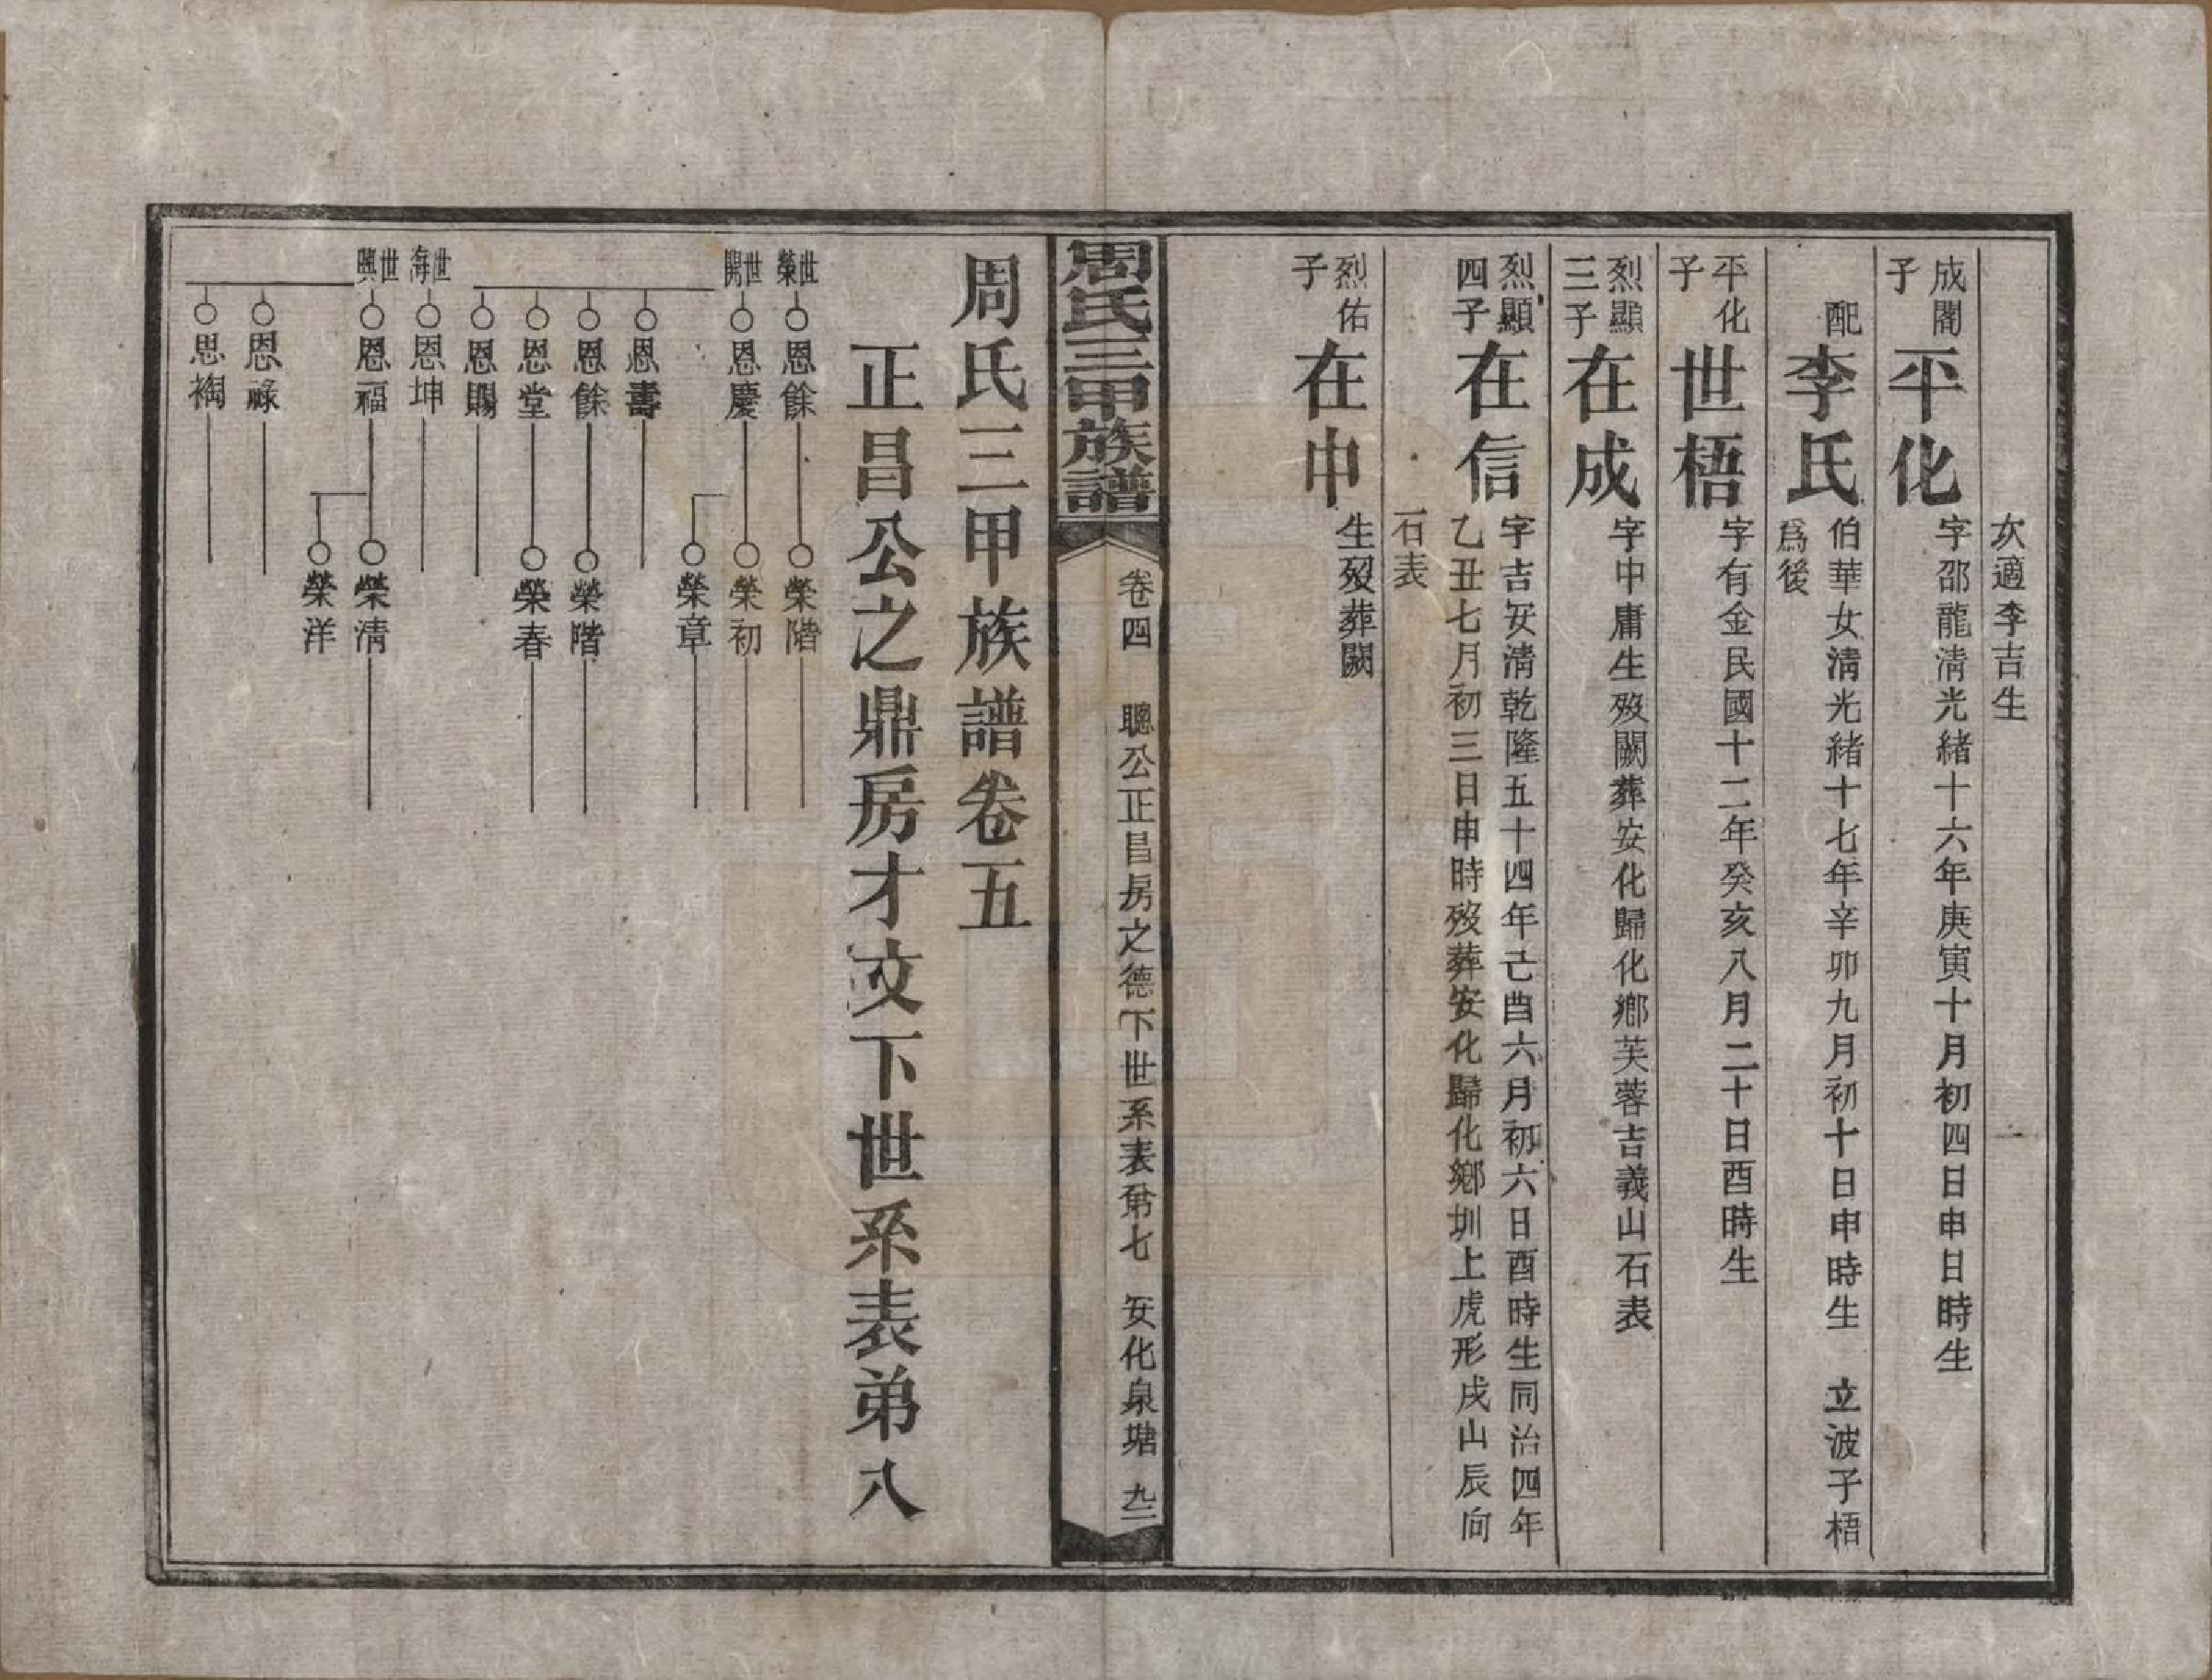 次適李吉生
成閣子 平化 字邵龍淸光緒十六年庚寅十月初四日申日時生
配 李氏 伯華女淸光緒十七年辛卯九月初十日申時生 立波子梧
爲後
平化子 世梧 字有金民國十二年癸亥八月二十日酉時生
烈顯三子 在成 字中庸生歿闕葬安化歸化鄕芙蓉吉義山石表
烈顯四子 在信 字吉安淸乾隆五十四年己酉六月初六日酉時生同治四年
乙丑七月初三日申時歿葬安化歸化鄕圳上虎形戌山辰向
石表
烈佑子 在申 生歿葬闕
周氏三甲族譜 卷四 聰公正昌房之德下世系表弟七 安化泉塘 九二
周氏三甲族譜卷五
正昌公之鼎房才文下世系表弟八
世榮 恩餘 榮階
世開 恩慶 榮初
榮章
恩壽
恩餘 榮階
恩堂 榮春
恩賜
世海 恩坤
世興 恩福 榮淸
榮洋
恩祿
思裪